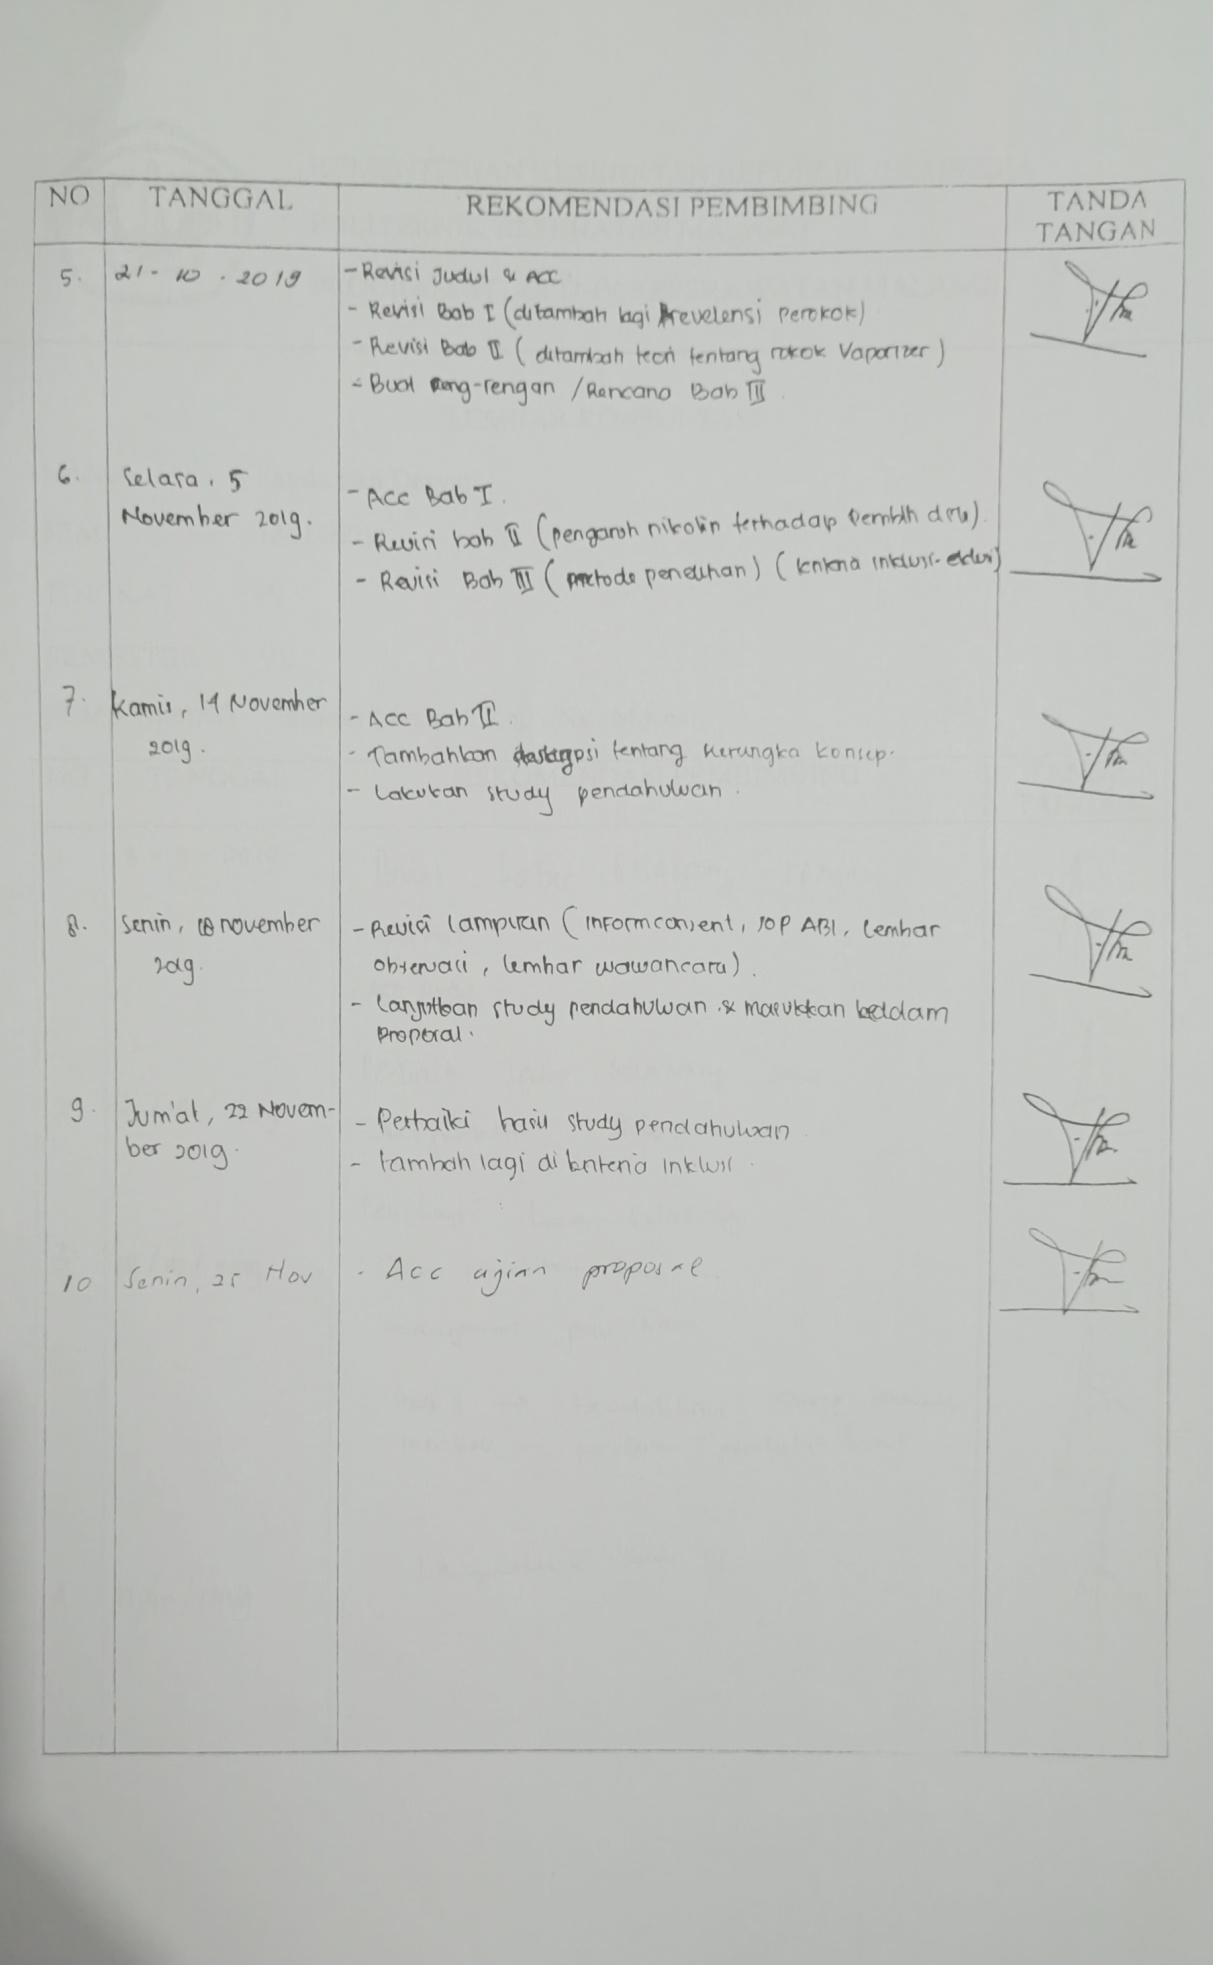 NO TANGGAL REKOMENDASI PEMBIMBING TANDA
TANGAN
5. 21 - 10 - 2019 - Revisi Judul & ACC
- Revisi Bab I (ditambah lagi Prevelensi Perokok)
- Revisi Bab II ( ditambah teori tentang rokok Vaporizer )
- Buat reng-rengan / Rencana Bab III
6. Selasa, 5
November 2019.
- ACC Bab I.
- Revisi bab II (pengaruh nikotin terhadap Pemblh drh)
- Revisi Bab III ( metode penelitian) ( kriteria inklusi-eklusi)
7. Kamis, 14 November
2019.
- ACC Bab II.
- Tambahkan tentang kerangka konsep.
- Lakukan study pendahuluan.
8. Senin, 18 november
2019.
- Revisi lampiran ( informconsent, SOP ABI, lembar
observasi, lembar wawancara).
- Lanjutkan study pendahuluan & masukkan kedalam
proposal.
9. Jum'at, 22 Novem-
ber 2019.
- Perbaiki hasil study pendahuluan
- tambah lagi di kriteria inklusi.
10 Senin, 25 Nov - Acc ujian proposal